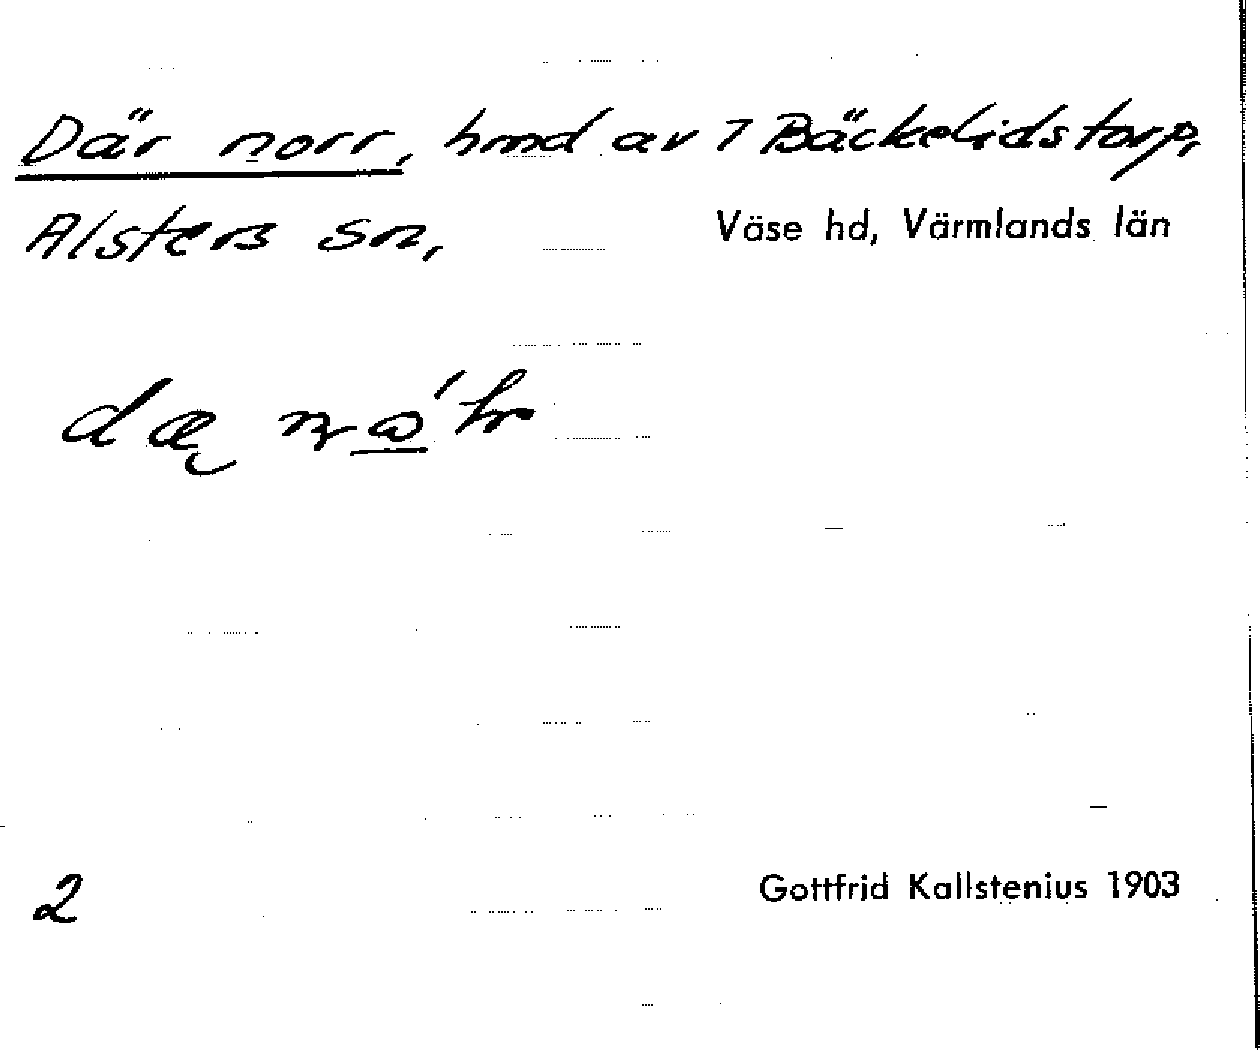 Där norr, hmd av 7 Bäckelidstorp,
Alsters sn, Väse hd, Värmlands län
2 Gottfrid Kallstenius 1903